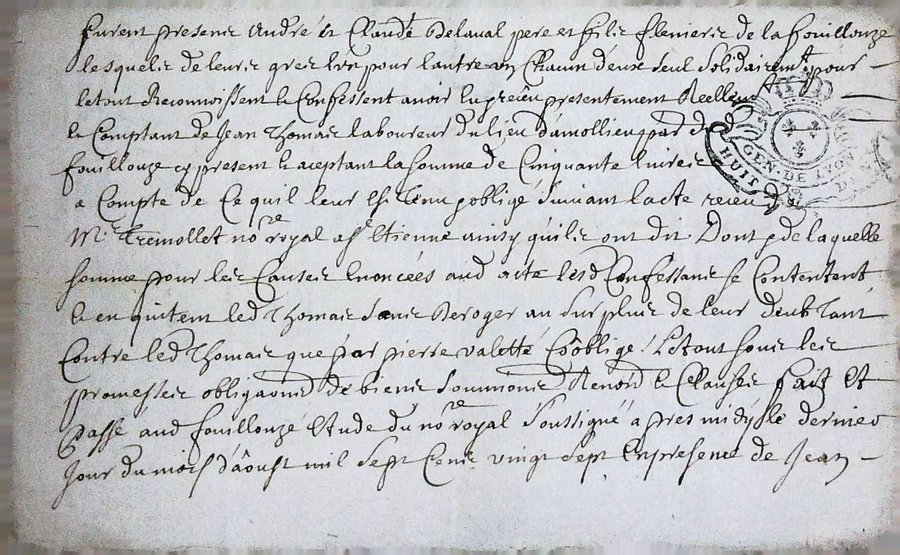 furent presens André et Claude Delaval pere et fils fleniers de la fouillouze
lesquels de leurs grez l'un pour lautre un Chaun deux seul solidairemt pour
letout Reconnoissent et Confessent avoir Eu preceu presentement Reellemt
et Comptant de Jean Thomas laboureur du lieu damollieu par de
fouillouze cy present et aceptant la somme de Cinquante livres
a Compte de Ce quil leur Est Tenu pobligé suivant lacte receu
Mr Tremollet nore royal a St Etienne ainsy quils ont dit Dont pde laquelle
somme pour les Causes Enoncées aud acte lesd Confessans se Contentent
et en quitent led Thomas sans Deroger au surplus de leur deub Tant
Contre led Thomas que par pierre valette Coôblige! Letout sous les
promesses obligaons de biens soumions Renons et Clauses fait et
passé aud fouillouze Etude du nore royal soussigné apres midy le dernier
Jour du mois d'aoust mil sept Cens vingt sept En presence de Jean
HUIT
GEN. DE LYON